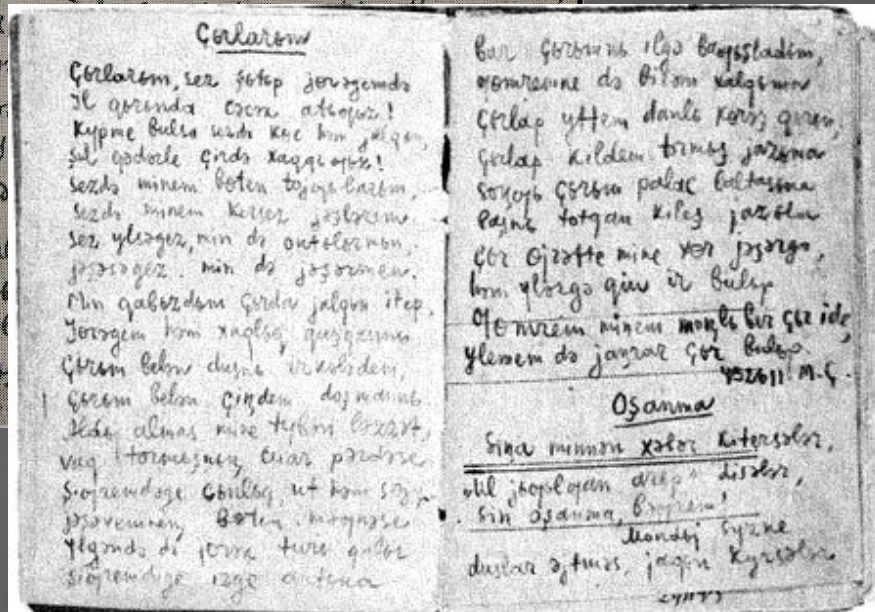 Çьrlarьm
Çьrlarьm, sez şьtьp jɵrəgemdə
Il qьrьnda cəcək atьgьz!
Kypme bulsa sezdə kɵc həm jalqьn,
Şul qədərle çirdə xaqqьgьz!
Sezdə minem bɵten tojgьlarьm,
Sezdə minem kersez jəşlərem.
Sez ylsəgez, min də ontьlьrmьn,
jəşəsəgez, min də jəşərmen.
Min qabьzdьm çьrda jalqьn itep
Jɵrəgem həm xaqlьq quşqannь
Çьrьm belən dusnь irkələdem,
Çьrьm belən çiŋdem doşmannь.
Aldьj almas mine tybən ləzzət,
vaq tormьşnьŋ cuar pərdəse
Şigremdəge cьnlьq, ut həm sɵjy
jəşəvemneŋ bɵten məgnəse
Ylgəndə də turь qalьr
Şigremdəge izge antьna
Bar çьrьmnь ilgə bagьşladьm,
gomremne də birəm xalqьma
Çьrlap yttem danlь kɵrəş qьrьn,
Çьrlap kildem tormьş jazьna
Soŋgь çьrьm palac baltasьna
Başnь totqan kileş jazьla
Çьr ɵjrətte mine xɵr jəşərgə,
həm ylərgə qьju ir bulьp
Gomrem minem moŋlь ber çьr ide,
ylemem də jaŋrar çьr bulьp.
M.Ç.
Ьşanma
Siŋa minnən xəbər kitersələr,
"Ul jьgьlgan arьp" disələr,
Sin ьşanma, bəgrem!
Mondьj syzne
duslar əjtməs, jaqьn kyrsələr